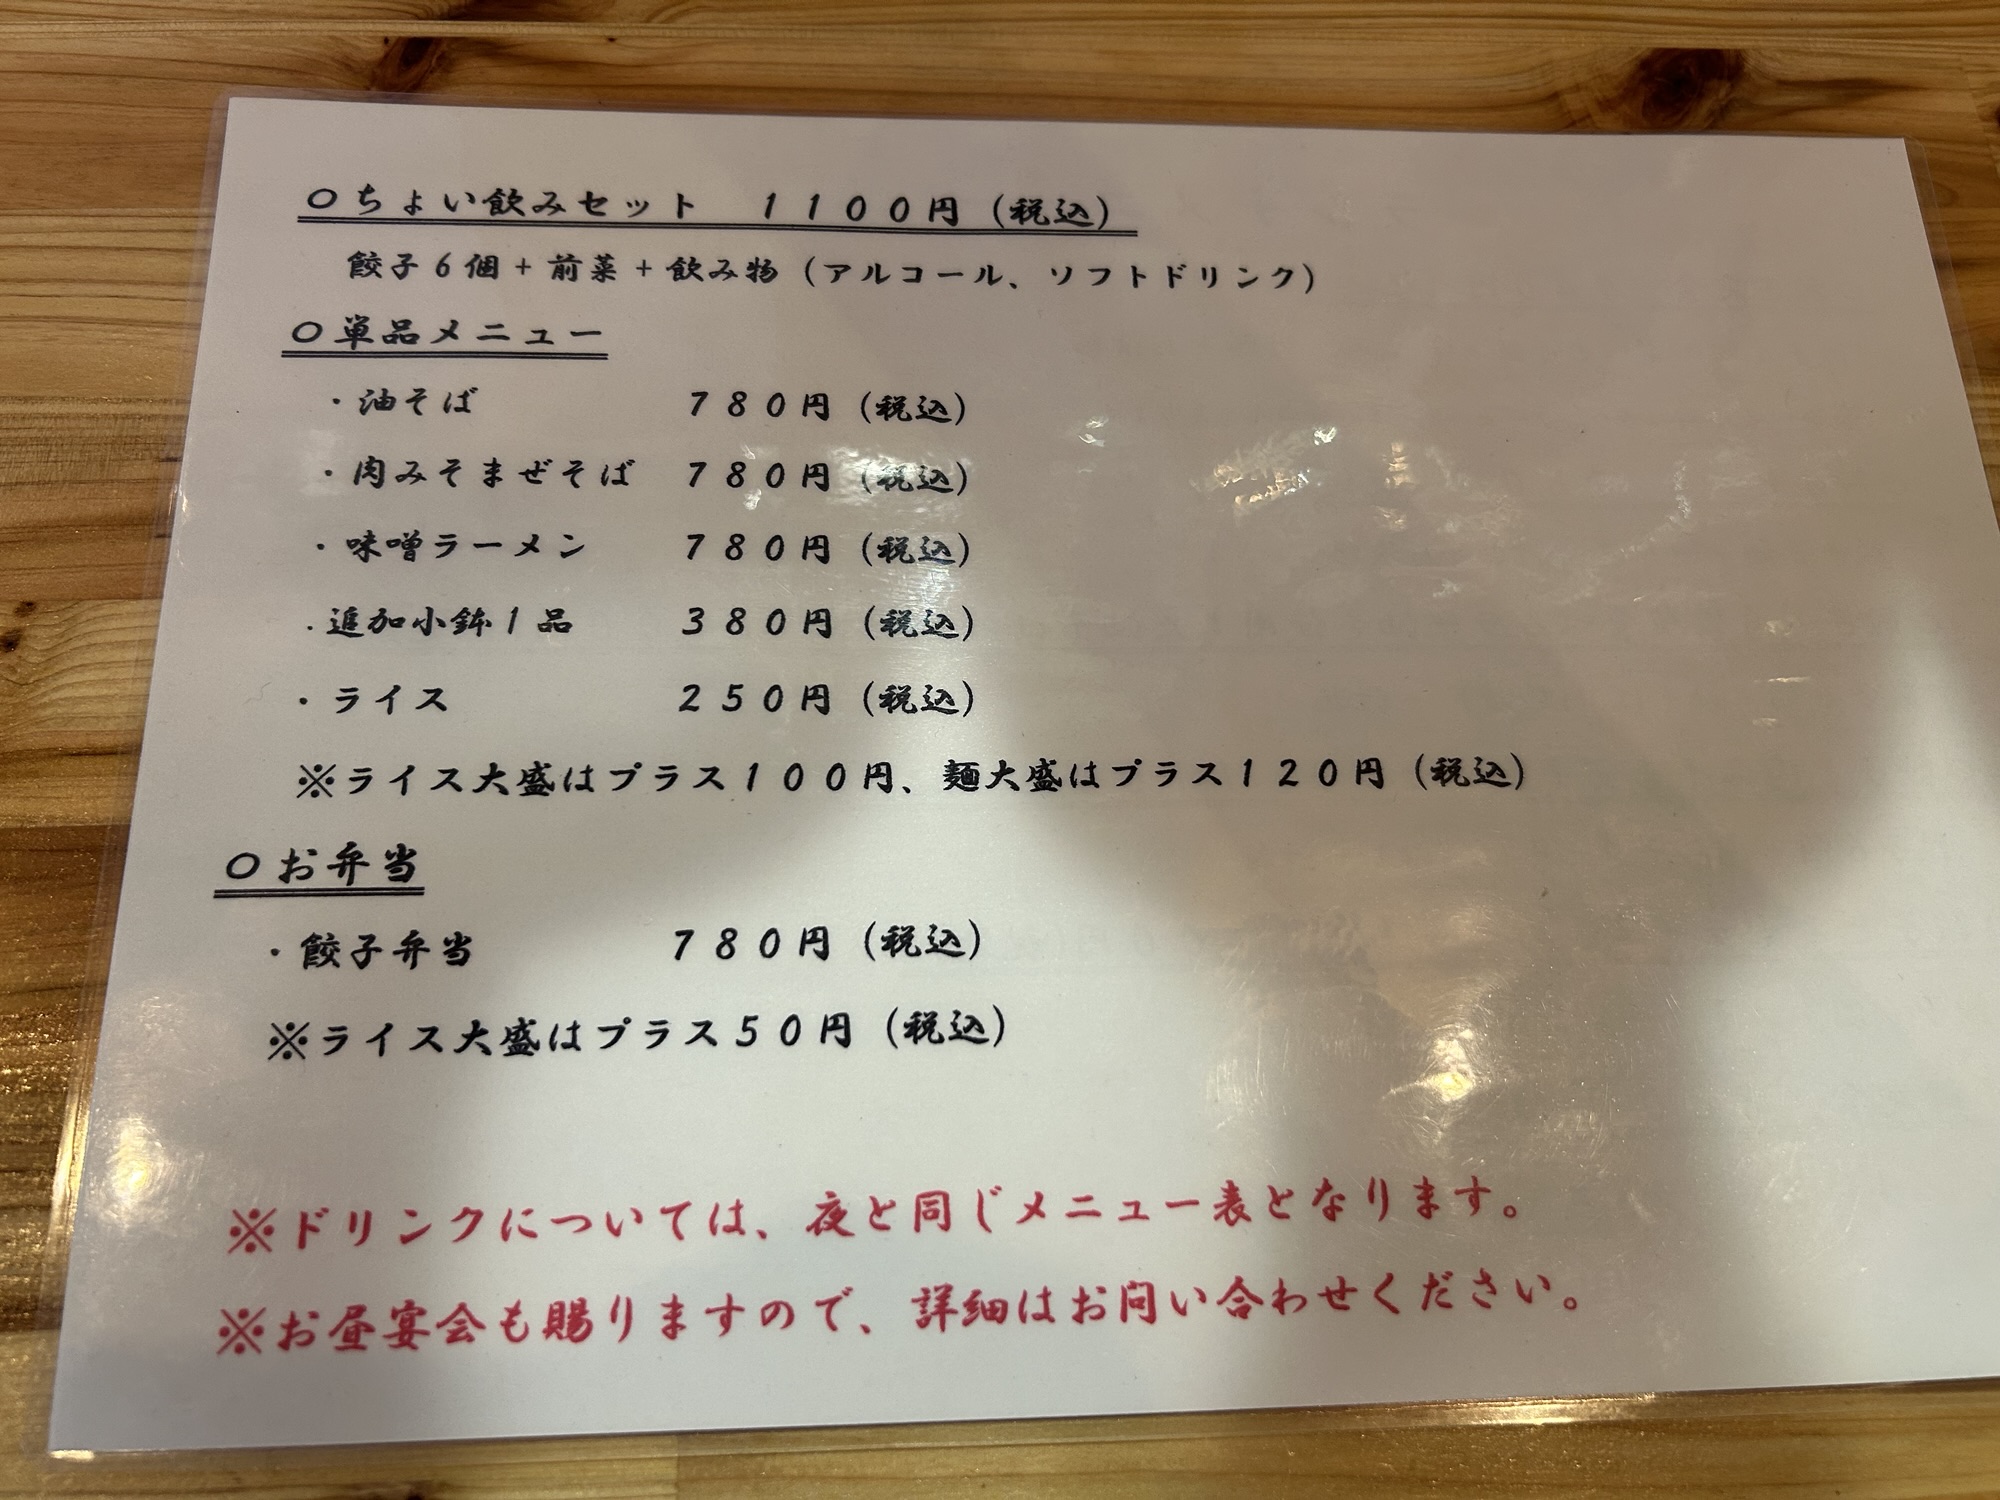 ○ちょい飲みセット　1100円（税込）
餃子6個+前菜+飲み物（アルコール、ソフトドリンク）
○単品メニュー
・油そば　780円（税込）
・肉みそまぜそば　780円（税込）
・味噌ラーメン　780円（税込）
・追加小鉢1品　380円（税込）
・ライス　250円（税込）
※ライス大盛はプラス100円、麺大盛はプラス120円（税込）
○お弁当
・餃子弁当　780円（税込）
※ライス大盛はプラス50円（税込）
※ドリンクについては、夜と同じメニュー表となります。
※お昼宴会も賜りますので、詳細はお問い合わせください。